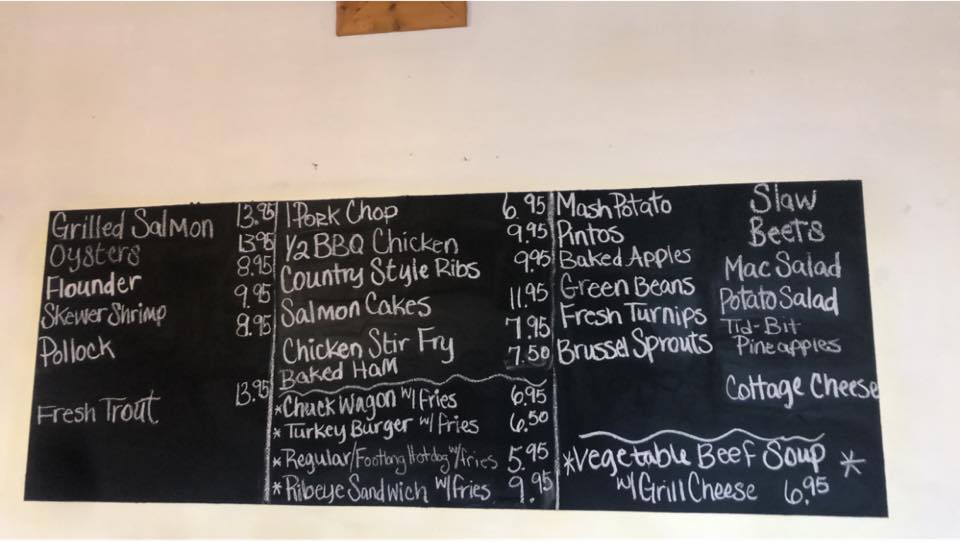 Grilled Salmon 13.95
Oysters 13.95
Flounder 8.95
Skewer Shrimp 9.95
Pollock 8.95
Fresh Trout 13.95
1 Pork Chop 6.95
1/2 BBQ Chicken 9.95
Country Style Ribs 9.95
Salmon Cakes 11.95
Chicken Stir Fry 7.95
Baked Ham 7.50
*Chuck Wagon w/ Fries 6.95
* Turkey Burger w/ fries 6.50
* Regular/Footlong Hotdog w/fries 5.95
* Ribeye Sandwich w/ fries 9.95
Mash Potato
Pintos
Baked Apples
Green Beans
Fresh Turnips
Brussel Sprouts
Slaw
Beets
Mac Salad
Potato Salad
Tid-Bit
Pineapples
Cottage Cheese
*Vegetable Beef Soup *
w/ Grill Cheese 6.95